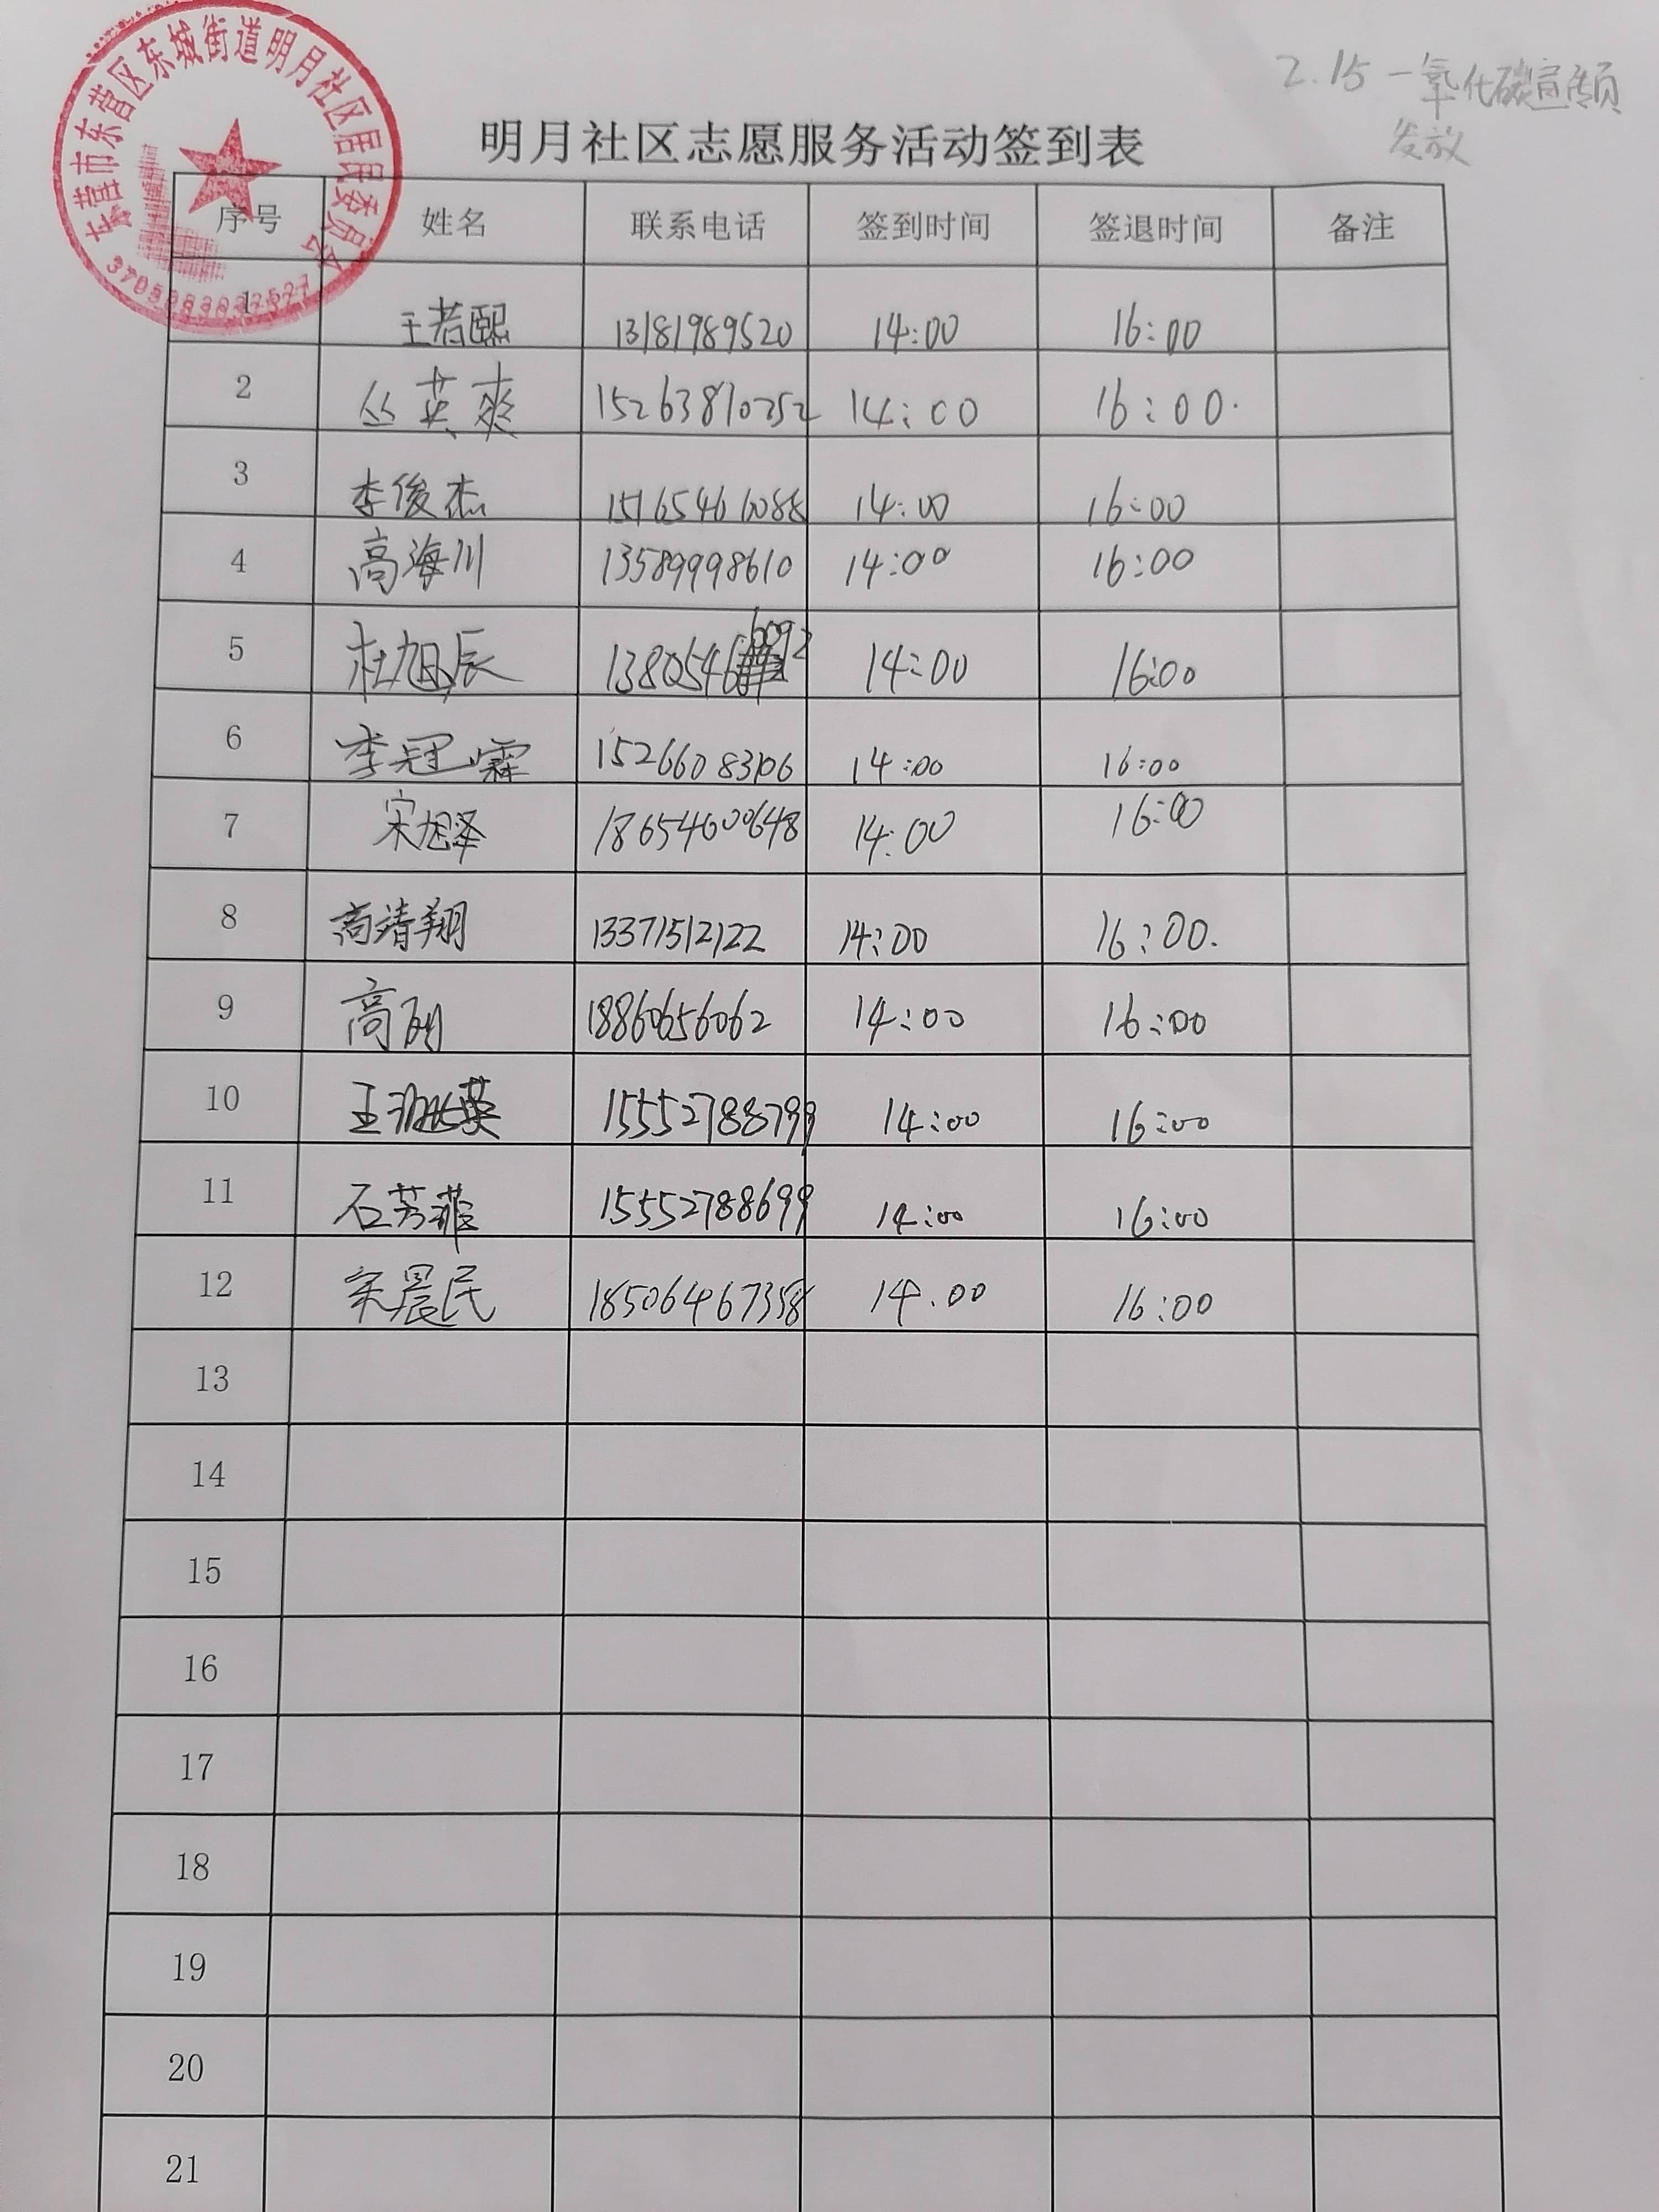 东营市东营区东城街道明月社区居民委员会
2.15 一氧化碳宣传页
发放
明月社区志愿服务活动签到表
序号 姓名 联系电话 签到时间 签退时间 备注
1 王若熙 13181989520 14:00 16:00
2 丛英爽 15263810252 14:00 16:00.
3 李俊杰 15165466088 14:00 16:00
4 高海川 13589998610 14:00 16:00
5 杜旭辰 13805466092 14:00 16:00
6 李冠霖 15266083106 14:00 16:00
7 宋旭泽 18654600648 14:00 16:00
8 高靖翔 13371512122 14:00 16:00.
9 高 18860656062 14:00 16:00
10 王 英 15552788799 14:00 16:00
11 石芳菲 15552788699 14:00 16:00
12 宋晨民 18506467358 14.00 16:00
13
14
15
16
17
18
19
20
21